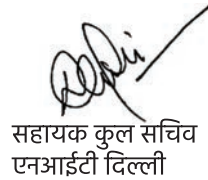 सहायक कुल सचिव
एनआईटी दिल्ली